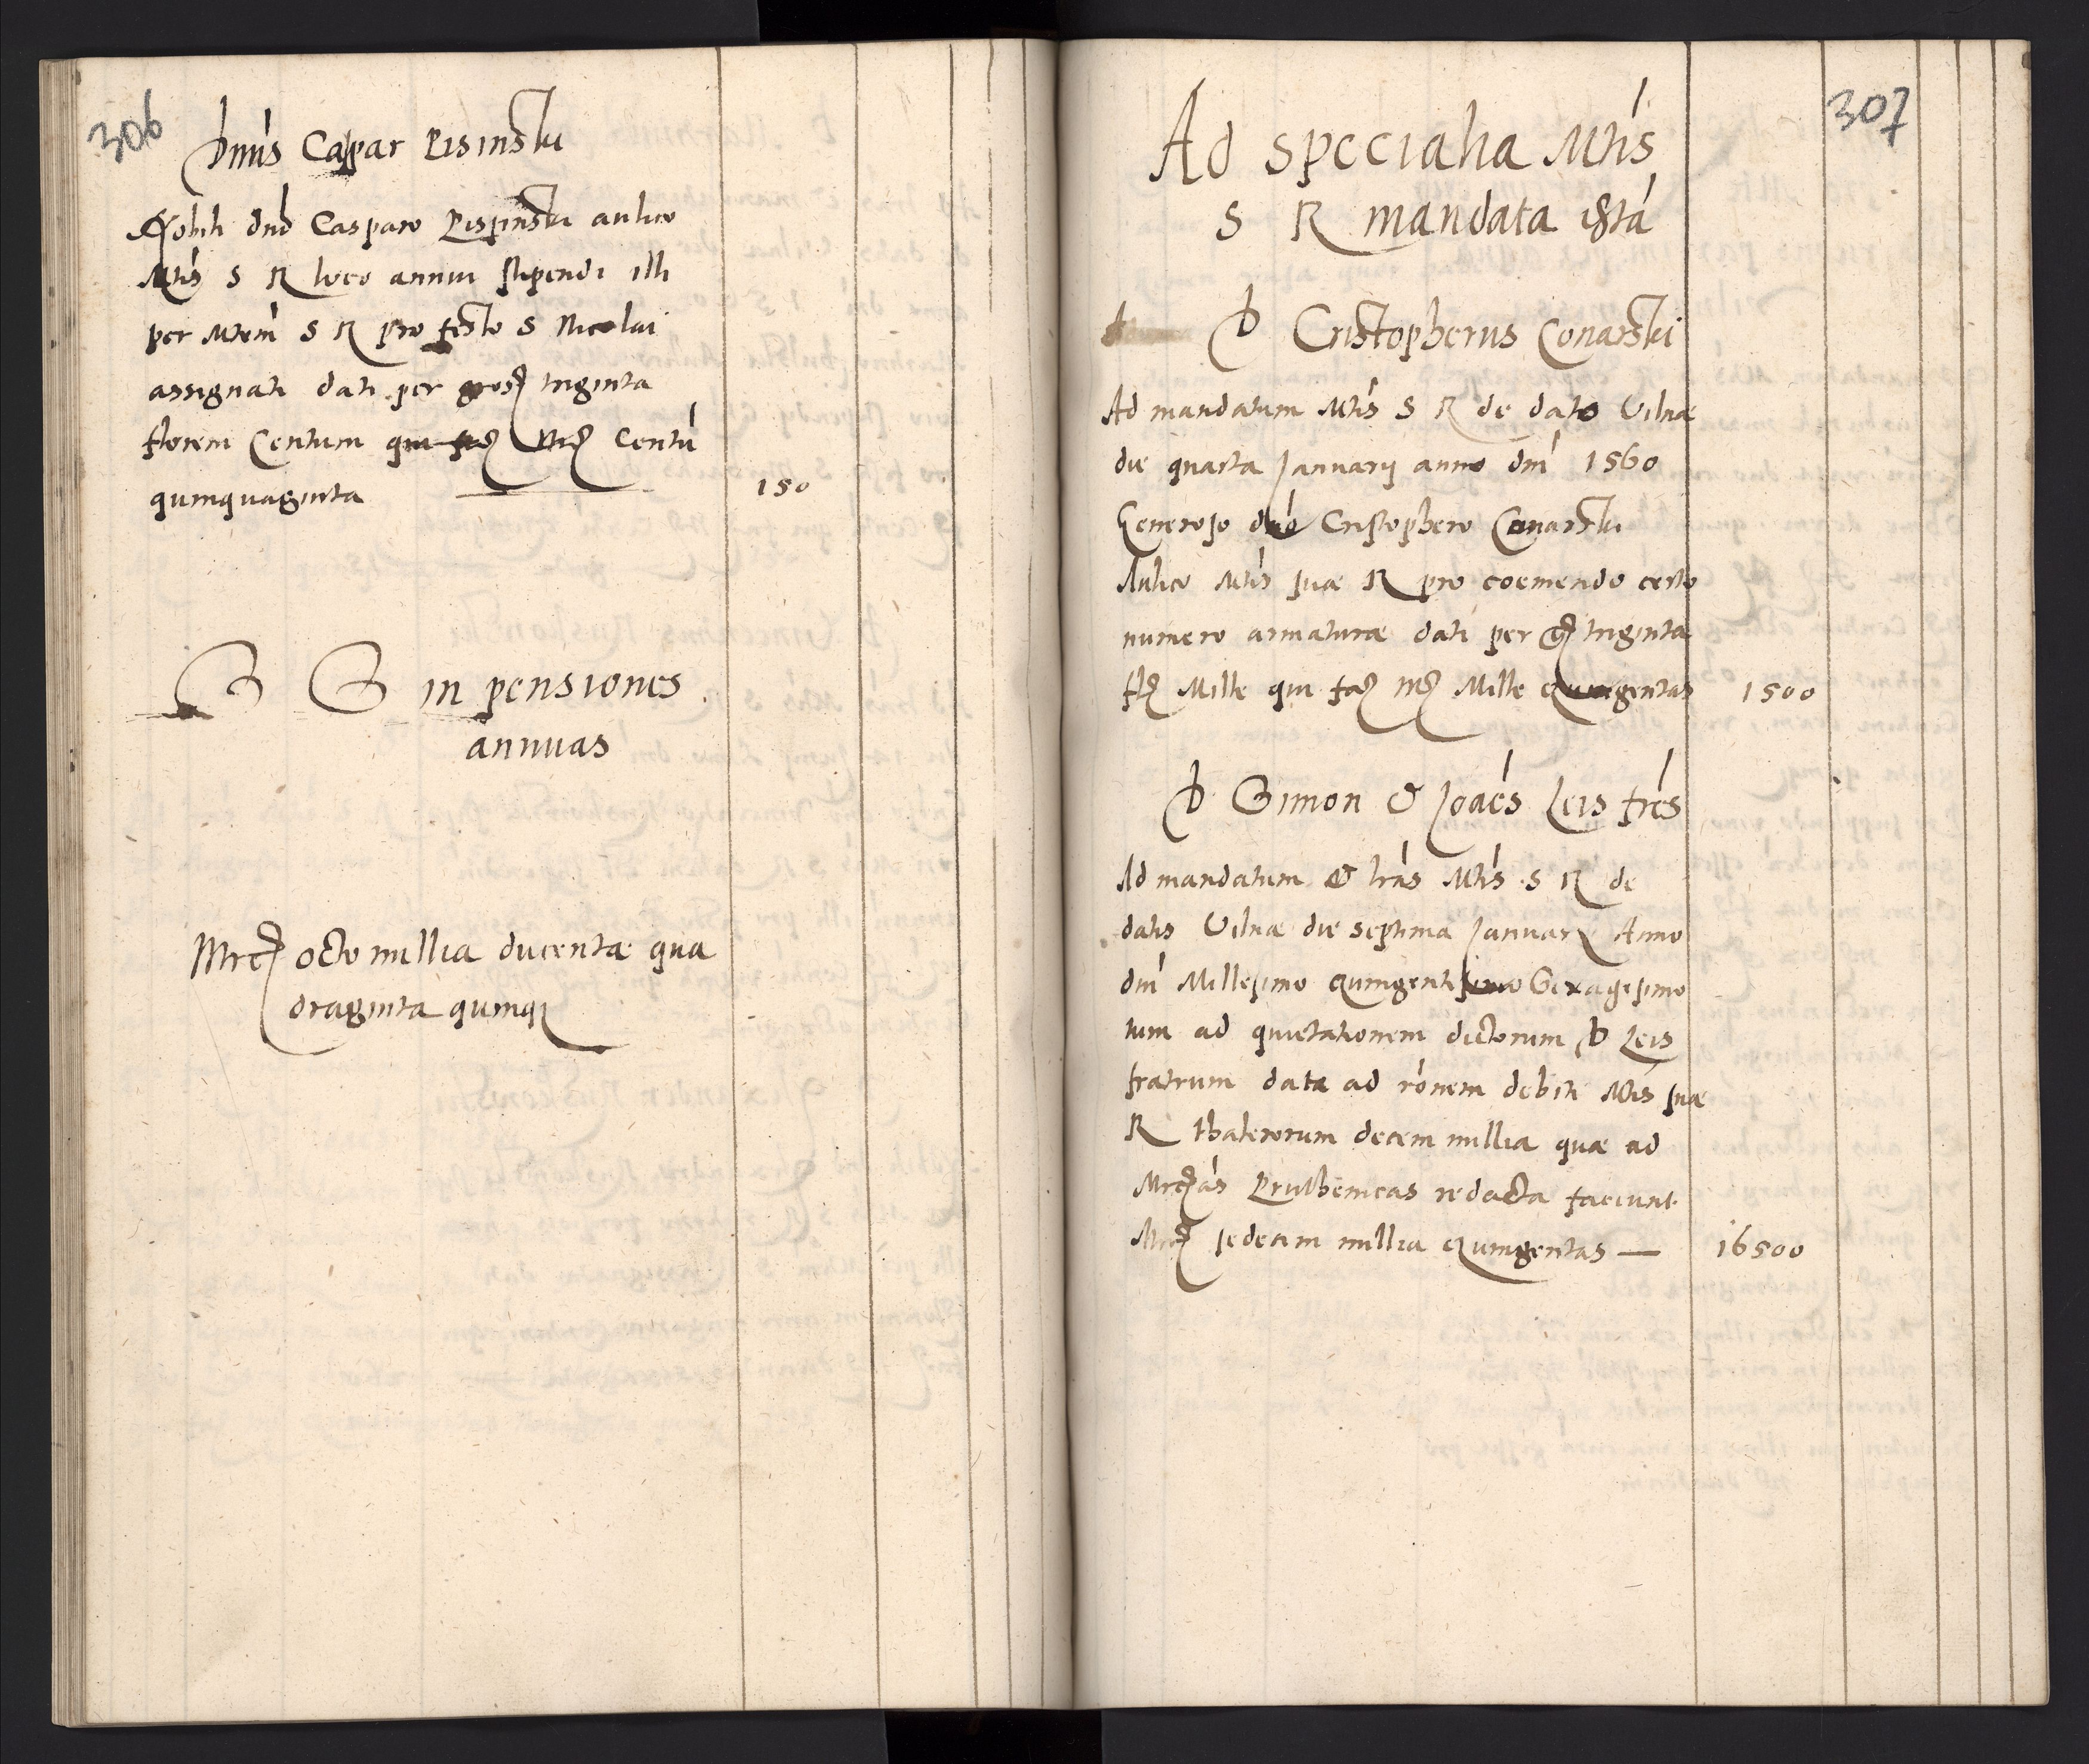 306
Dnus Caspar Lisinski
Nobili dno Casparo Lispinski aulico
Mtis S R loco annui stipendi illi
per Mtem S R pro festo S Nicolai
assignati dati per gross triginta
florem Centum qui fac Mrc Centu
quinquaginta 150
S S in pensiones
annuas
Mrc octo millia ducentae qua
draginta quinq
307
Ad specialia Mtis
S R mandata ista
D Cristopherus Conarski
Ad mandatum Mtis S R de dato Vilnae
die quarta Januarij anno dni 1560
Generoso dno Cristophero Conarski
Aulico Mtis suae R pro coemendo certo
numero armaturae dati per g triginta
fl Mille qui fac mrc Mille quingentas 1500
D Simon & Joaes Leis fres
Ad mandatum & lras Mtis S R de
datis Vilnae die septima Januarij Anno
dni Millesimo quingentesimo Sexagesimo
tum ad quietationem dictorum D Leis
fratrum data ad ronem debiti Mtis suae
R thalerorum decem millia quae ad
Mrcas Pruthenicas redacta faciunt
Mrc sedecim millia quingentas — 16500